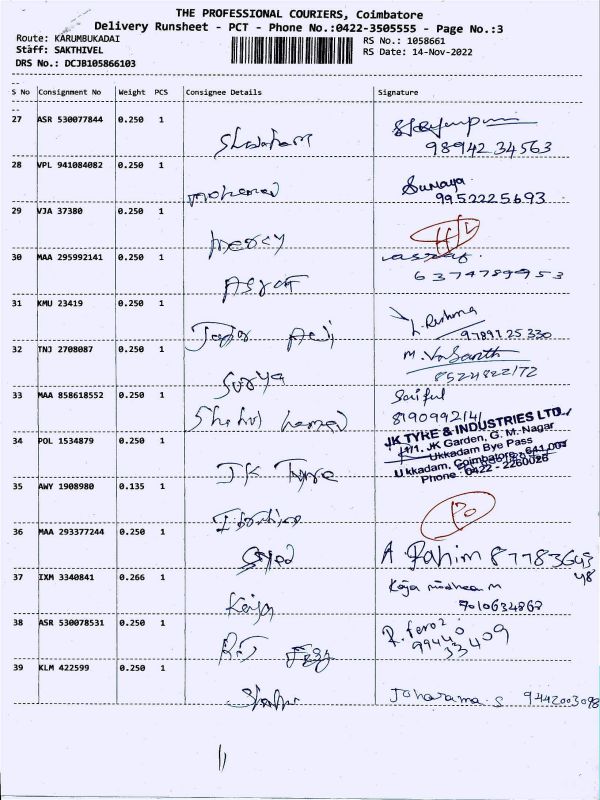 THE PROFESSIONAL COURIERS, Coimbatore
Delivery Runsheet - PCT - Phone No.:0422-3505555 - Page No.:3
Route: KARUMBUKADAI
RS No.: 1058661
Staff: SAKTHIVEL
RS Date: 14-Nov-2022
DRS No.: DCJB105866103
S No Consignment No Weight PCS Consignee Details Signature
27 ASR 530077844 0.250 1
98942 34563
28 VPL 941084082 0.250 1 mohamed Sumaya
9952225693
29 VJA 37380 0.250 1 mercy
30 MAA 295992141 0.250 1
6374789953
31 KMU 23419 0.250 1
L. Reshma
97891 25 330
32 TNJ 2708087 0.250 1 Surya M. Vasanth
8524822172
33 MAA 858618552 0.250 1 Saiful
8190992141
34 POL 1534879 0.250 1 JK Tyre
JK TYRE & INDUSTRIES LTD.,
1/1, JK Garden, G. M. Nagar
Ukkadam Bye Pass
Ukkadam, Coimbatore - 641 001
Phone : 0422 - 2260026
35 AWY 1908980 0.135 1
36 MAA 293377244 0.250 1 Syed A Rahim 8778364348
37 IXM 3340841 0.266 1 Kaja
7010634862
38 ASR 530078531 0.250 1 R. feroz
99440
33409
39 KLM 422599 0.250 1 9442003098